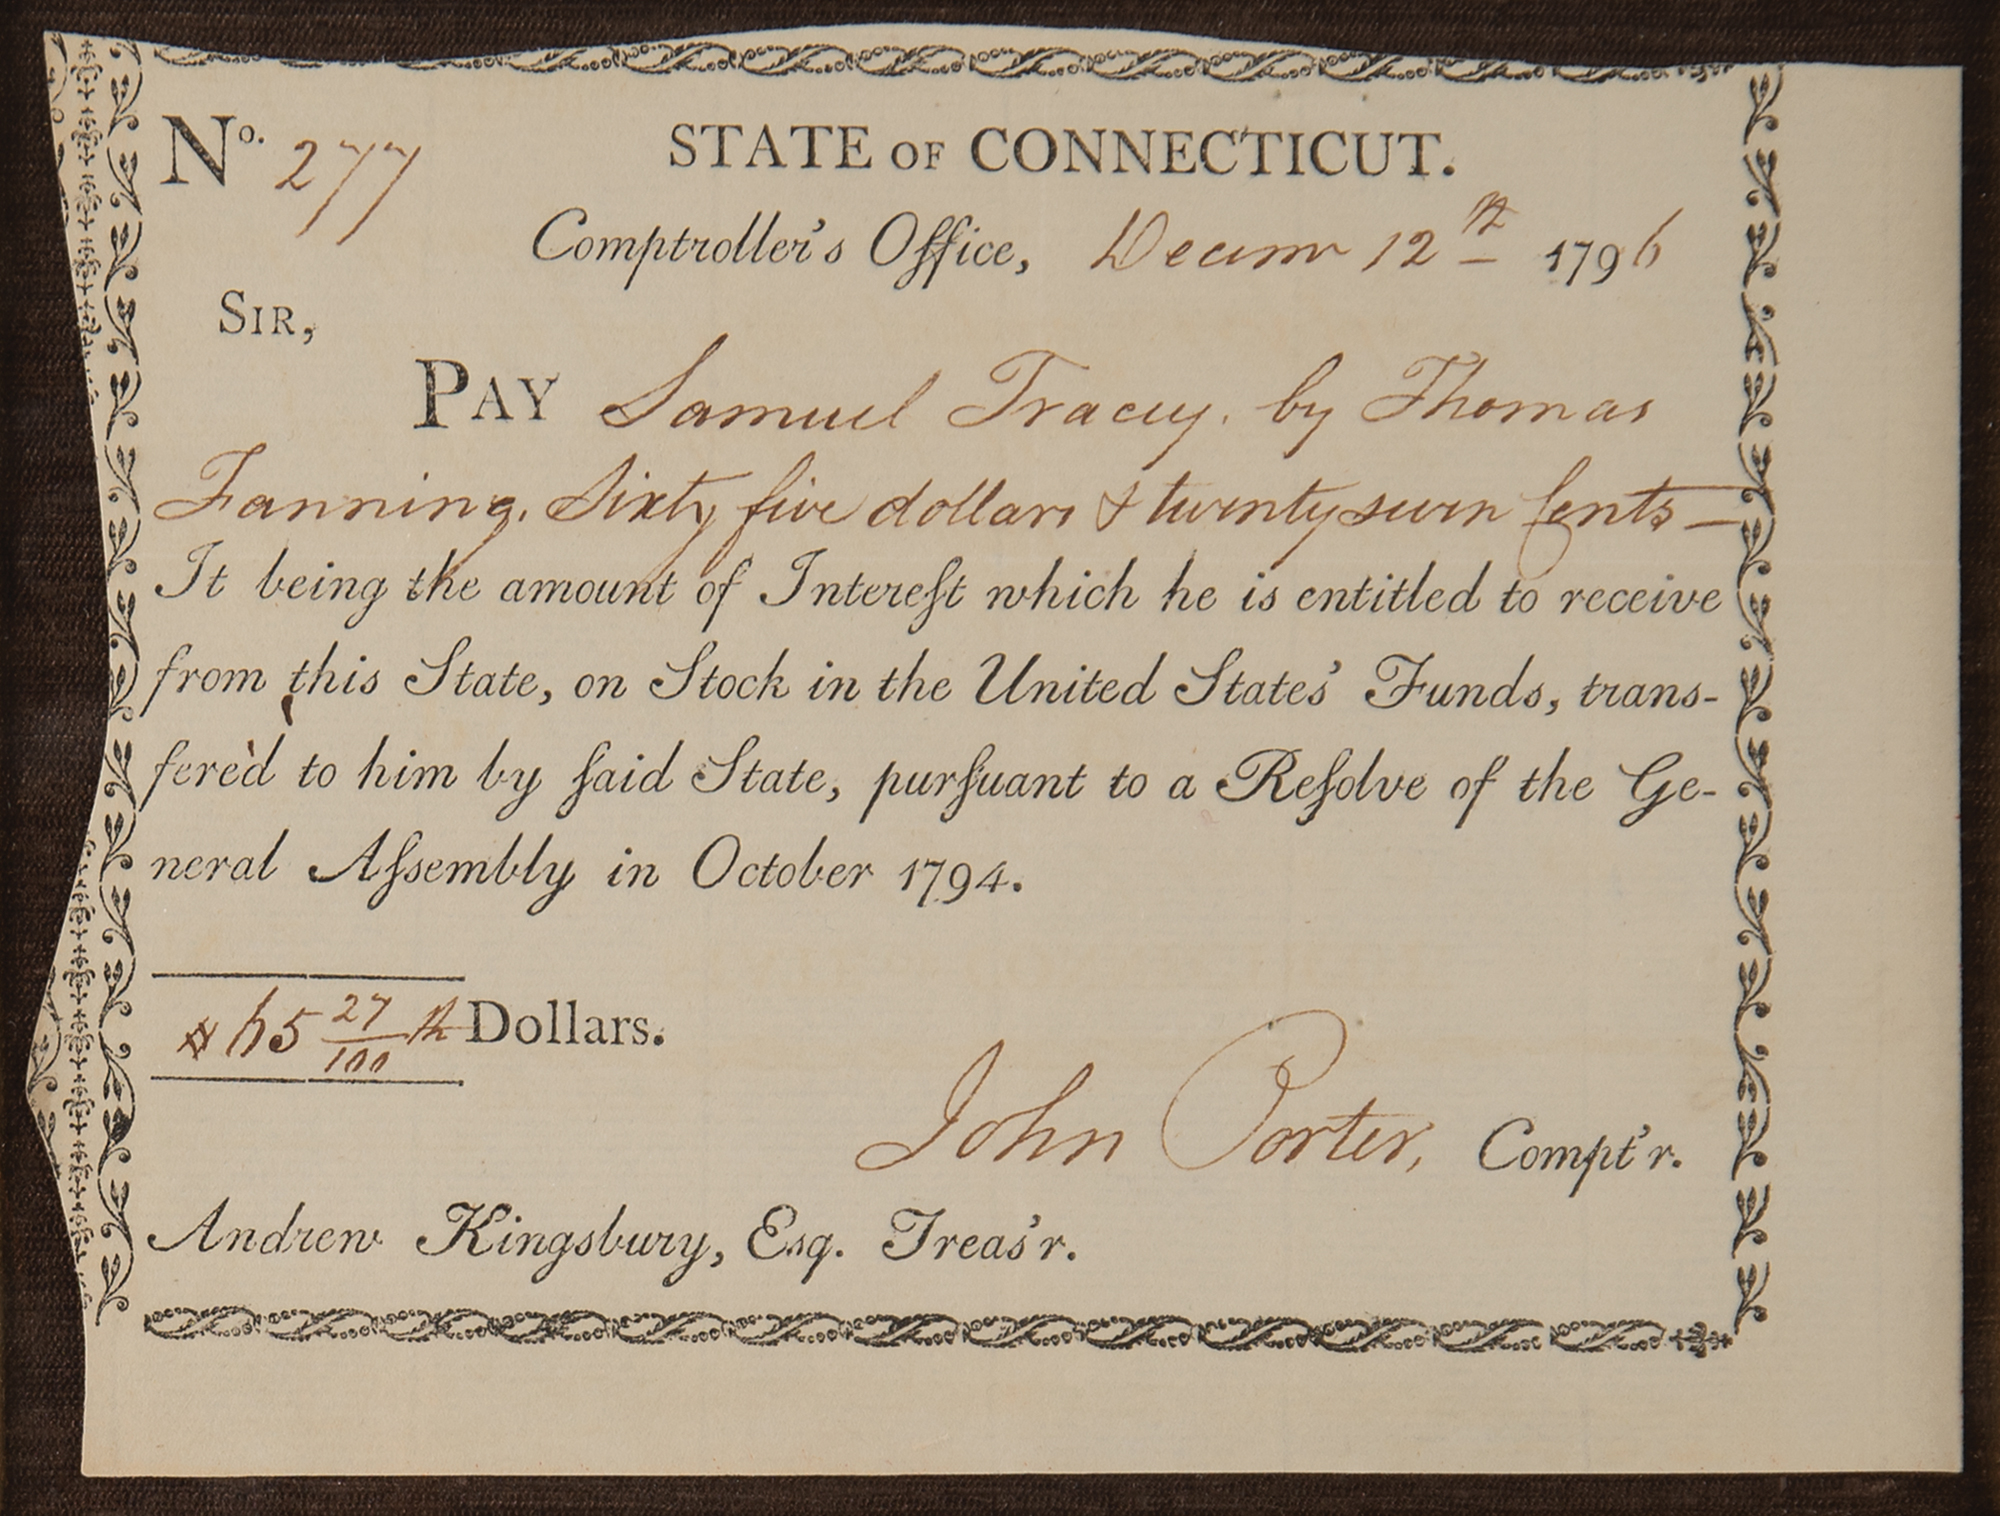 No. 277
STATE OF CONNECTICUT.
Comptroller's Office, Decemr 12th 1796
SIR,
PAY Samuel Tracey. by Thomas
Fanning. Sixty five dollars & twenty seven Cents —
It being the amount of Intereſt which he is entitled to receive
from this State, on Stock in the United States' Funds, trans-
fere'd to him by ſaid State, purſuant to a Reſolve of the Ge-
neral Aſsembly in October 1794.
$ 65 27/100 th Dollars.
John Porter, Compt'r.
Andrew Kingsbury, Esq. Treas'r.